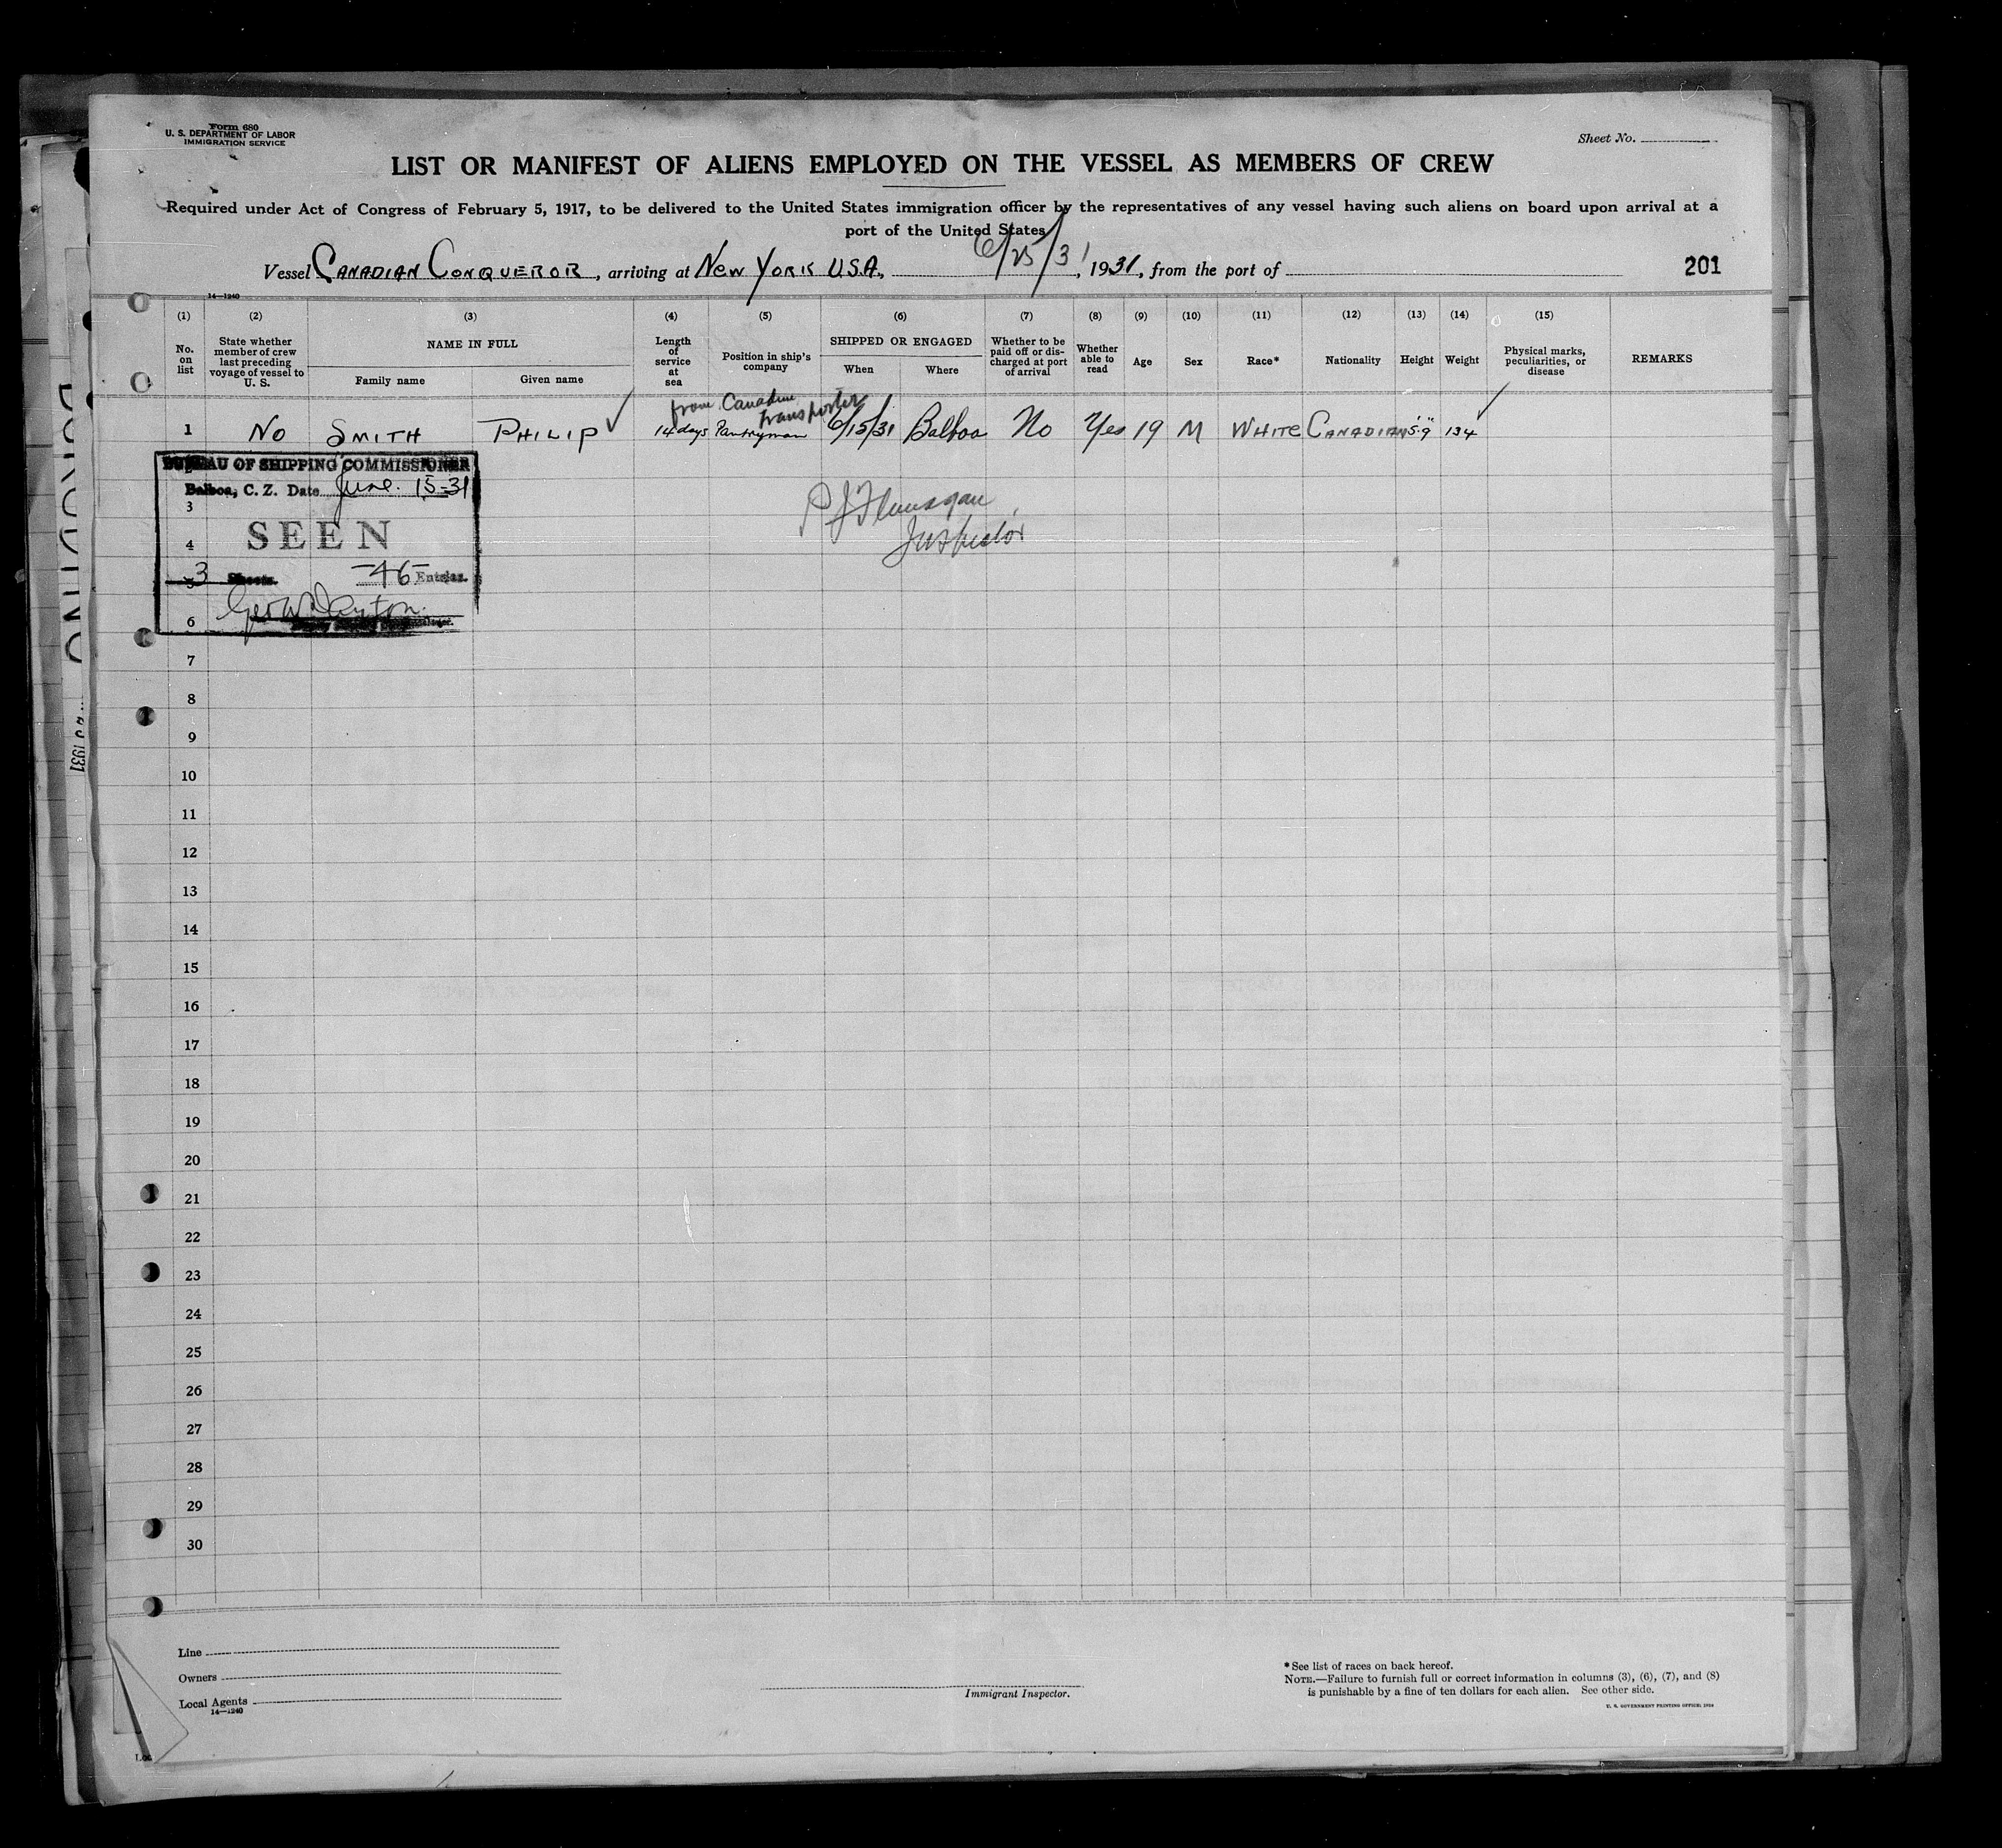 Form 680
U. S. DEPARTMENT OF LABOR
IMMIGRATION SERVICE
Sheet No.
LIST OR MANIFEST OF ALIENS EMPLOYED ON THE VESSEL AS MEMBERS OF CREW
Required under Act of Congress of February 5, 1917, to be delivered to the United States immigration officer by the representatives of any vessel having such aliens on board upon arrival at a
port of the United States
Vessel CANADIAN CONQUEROR, arriving at NEW YORK U.S.A., 6/25/31, 1931, from the port of
201
14—1240
(1) (2) (3) (4) (5) (6) (7) (8) (9) (10) (11) (12) (13) (14) (15)
No. on list
State whether member of crew last preceding voyage of vessel to U. S.
NAME IN FULL
Family name
Given name
Length of service at sea
Position in ship's company
SHIPPED OR ENGAGED
When
Where
Whether to be paid off or discharged at port of arrival
Whether able to read
Age
Sex
Race*
Nationality
Height
Weight
Physical marks, peculiarities, or disease
REMARKS
from Canadian
Transporter
1 No SMITH PHILIP 14 days Pantryman 6/15/31 Balboa No Yes 19 M WHITE CANADIAN 5'9" 134
BUREAU OF SHIPPING COMMISSIONER
Balboa, C. Z. Date June. 15-31
3
SEEN
4
3 Sheets. 46 Entries.
5
Geo W Dayton.
6
P J Flanagan
Inspector
7
8
9
10
11
12
13
14
15
16
17
18
19
20
21
22
23
24
25
26
27
28
29
30
Line
Owners
Local Agents
14—1240
Immigrant Inspector.
*See list of races on back hereof.
NOTE.—Failure to furnish full or correct information in columns (3), (6), (7), and (8)
is punishable by a fine of ten dollars for each alien. See other side.
U. S. GOVERNMENT PRINTING OFFICE:
1931